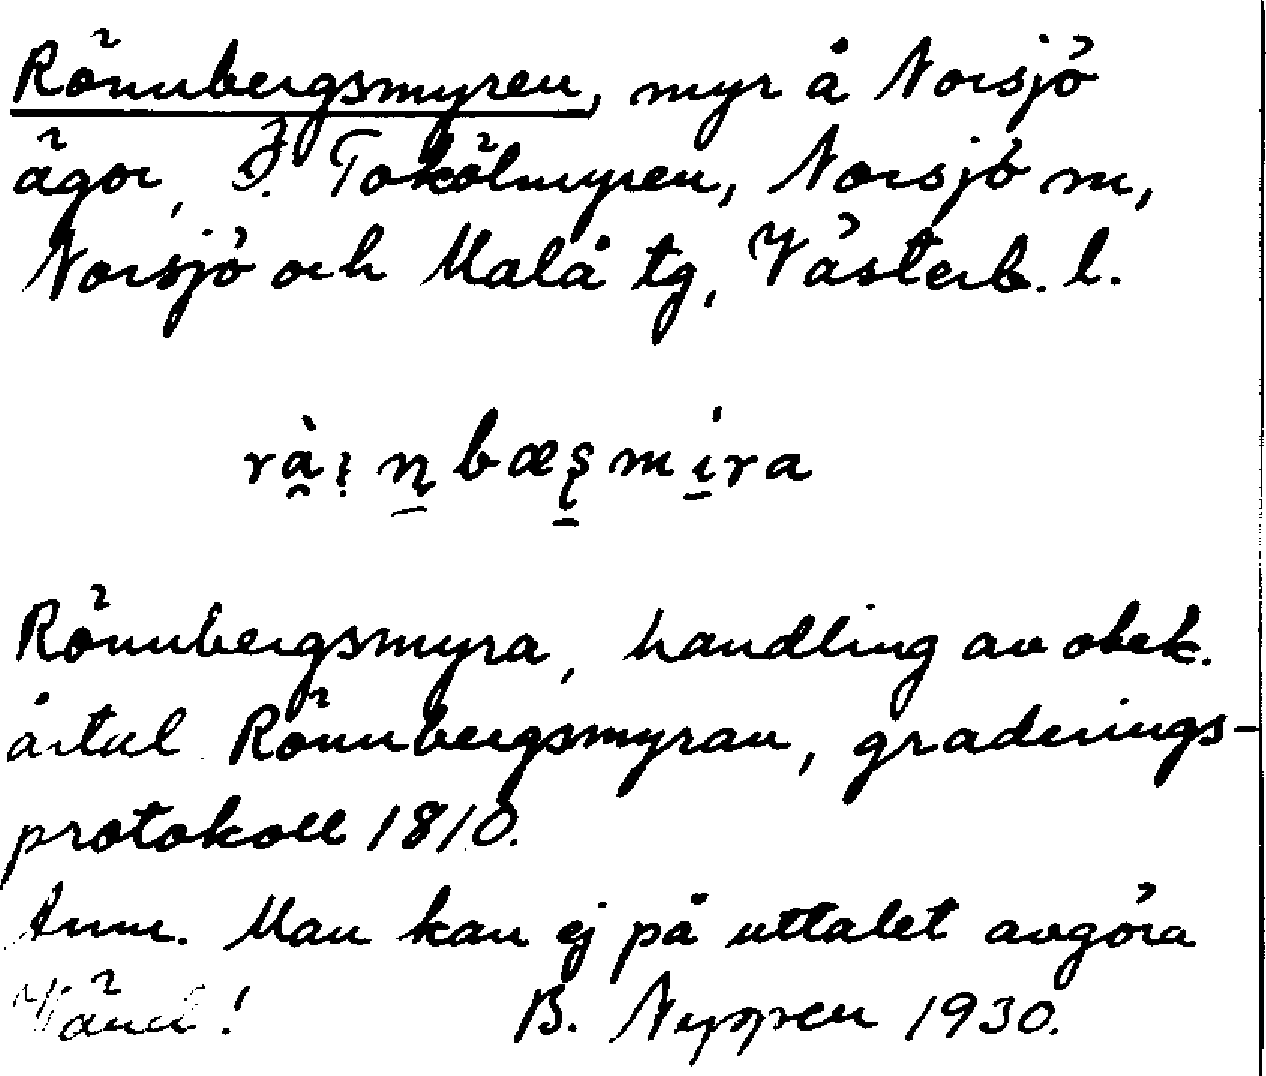 Rönnbergsmyren, myr å Norsjö
ägor, F. Tokölmyren, Norsjö sn,
Norsjö och Malå tg, Västerb. l.
rài̭ṇbæʂmíra
Rönnbergsmyra, handling av obek.
årtal Rönnbergsmyran, graderings-
protokoll 1810.
Anm. Man kan ej på uttalet avgöra
Vänd! B. Nyppen 1930.